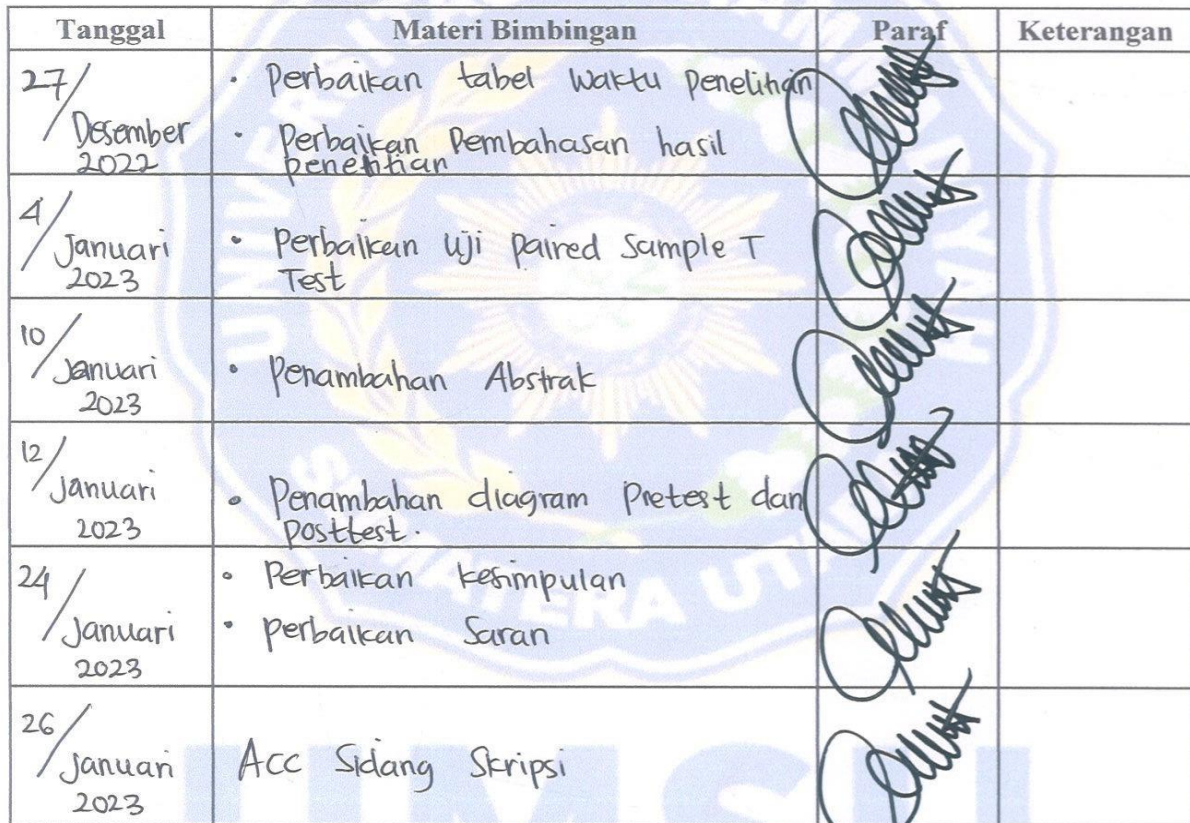 Tanggal Materi Bimbingan Paraf Keterangan
27/ Desember 2022
• Perbaikan tabel waktu penelitian
• Perbaikan Pembahasan hasil
penelitian
4/ Januari 2023
• Perbaikan Uji Paired Sample T
Test
10/ Januari 2023
• Penambahan Abstrak
12/ Januari 2023
• Penambahan diagram Pretest dan
Posttest.
24/ Januari 2023
• Perbaikan kesimpulan
• Perbaikan Saran
26/ Januari 2023
Acc Sidang Skripsi
UMSU